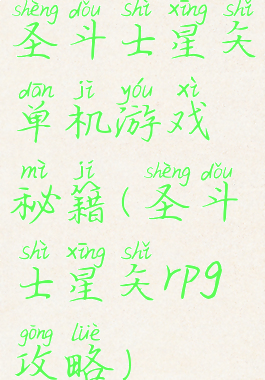 shèng dǒu shì xīng shǐ
圣斗士星矢
dān jī yóu xì
单机游戏
mì jí shèng dǒu
秘籍(圣斗
shì xīng shǐ
士星矢rpg
gōng lüè
攻略)